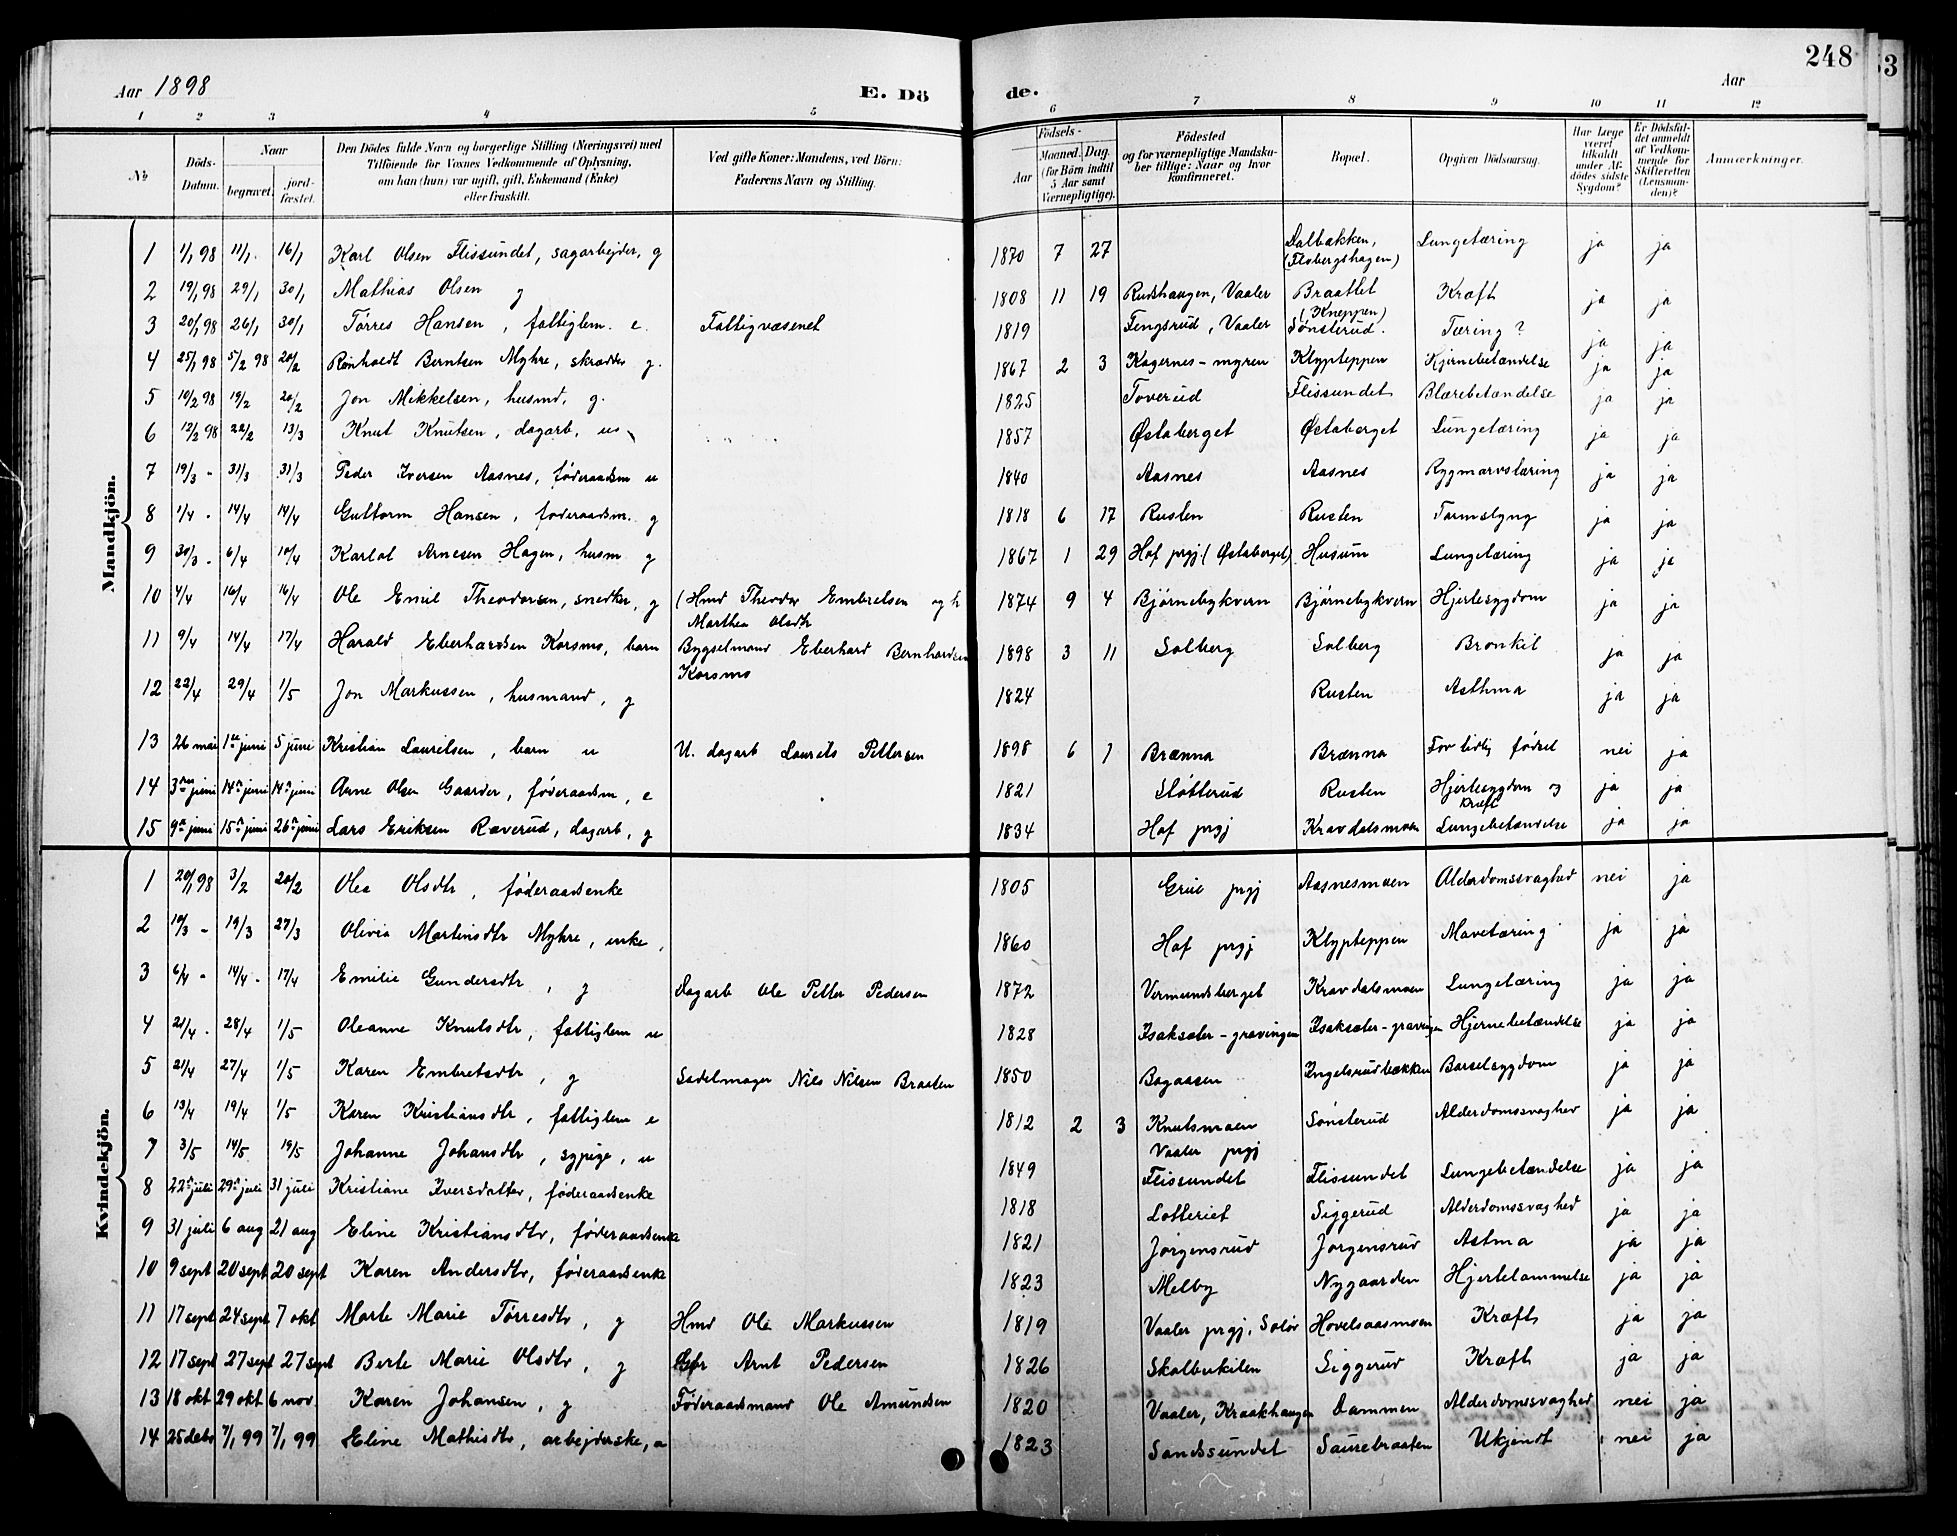 248
3
Aar 1898 E. Dö de. Aar
1 2 3 4 5 6 7 8 9 10 11 12
№ Döds-Datum. Naar begravet. jordfæstet. Den Dödes fulde Navn og borgerlige Stilling (Næringsvei) med Tilföiende for Voxnes Vedkommende af Oplysning, om han (hun) var ugift, gift, Enkemand (Enke) eller fraskilt. Ved gifte Koner: Mandens, ved Börn: Faderens Navn og Stilling. Födsels- Aar Maaned. Dag. (for Börn indtil 5 Aar samt Værnepligtige). Födested og for værnepligtige Mandskaber tillige: Naar og hvor konfirmeret. Bopæl. Opgiven Dödsaarsag. Har Læge været tilkaldt under Afdödes sidste Sygdom? Er Dödsfaldet anmeldt af Vedkommende for Skifteretten (Lensmanden)? Anmærkninger.
Mandkjön.
1 1/1 98 11/1. 16/1 Karl Olsen Flissundet, sagarbejder, g 1870 7 27 Dalbakken, (Flisbergshagen) Lungetæring ja ja
2 19/1 98 29/1 30/1 Mathias Olsen g 1808 11 19 Rudshaugen, Vaaler Braattet (Kneppen) Kræft ja ja
3 20/1 98 26/1 30/1 Tørres Hansen, fattiglem. e. Fattigvæsenet 1819 Tengsrud, Vaaler Sønsterud. Tæring? ja ja
4 25/1 98 5/2 98 20/2 Reinholdt Berntsen Myhre, skrædder g. 1867 2 3 Kagernes-myren Klypteppen Hjernebetændelse ja ja
5 10/2 98 19/2 20/2 Jon Mikkelsen, husmd, g. 1825 Toverud Flissundet Blærebetændelse ja ja
6 12/2 98 22/2 13/3 Knut Knutsen, dagarb, u 1857 Østaberget Østaberget Lungetæring ja ja
7 19/3 - 31/3 31/3 Peder Iversen Aasnes, føderaadsm u 1840 Aasnes Aasnes Rygmarvstæring ja ja
8 1/4 - 14/4 14/4 Guttorm Hansen, føderaadsm. g 1818 6 17 Rusten Rusten Tarmslyng ja ja
9 30/3 - 6/4 10/4 Karlot Arnesen Hagen, husm. g 1867 1 29 Hof prgj. (Østaberget) Husum Lungetæring ja ja
10 4/4 16/4 16/4 Ole Emil Theodorsen, snedker, g (Hmd Theodor Embretsen og h Marthea Olsdtr 1874 9 4 Bjørnebykvern Bjørnebykvern Hjertesygdom ja ja
11 9/4 14/4 17/4 Harald Eberhardsen Korsmo, barn Bygselmand Eberhard Bernhardsen Korsmo 1898 3 11 Solberg Solberg Bronkit ja ja
12 22/4 29/4 1/5 Jon Markussen, husmand, g 1824 Rusten Asthma ja ja
13 26 mai 1ste juni 5 juni Kristian Lauritsen, barn u U. dagarb Laurits Pettersen 1898 6 1 Brænna Brænna For tidlig fødsel nei ja
14 3die juni 14de juni 14de juni Arne Olsen Gaarder, føderaadsm, e 1821 Støtterud Rusten Hjertesygdom og Kræft ja ja
15 9de juni 15de juni 26de juni Lars Eriksen Ræverud, dagarb, g 1834 Hof prgj Kravdalsmoen Lungebetændelse ja ja
Kvindekjön.
1 20/1 98 3/2 20/2 Olea Olsdtr, føderaadsenke 1805 Grue prgj Aasnesmoen Alderdomssvaghed nei ja
2 10/3 - 19/3 27/3 Olivia Martinsdtr Myhre, enke, 1860 Hof prgj Klypteppen Mavetæring ja ja
3 6/4 - 14/4 - 17/4 Emilie Gundersdtr, g Dagarb Ole Petter Pedersen 1872 Vermundsberget Kravdalsmoen Lungetæring ja ja
4 21/4 - 28/4 1/5 Oleanne Knutsdtr, fattiglem u 1828 Isaksæter-gravingen Isaksæter-gravingen Hjernebetændelse ja ja
5 21/4 27/4 1/5 Karen Embretsdtr, g Sadelmager Nils Nilsen Braaten 1850 Bagaasen Engelsrudbækken Barselsygdom ja ja
6 13/4 19/4 1/5 Karen Kristiansdtr, fattiglem e 1812 2 3 Knutsmoen Vaaler prgj Sønsterud Alderdomssvaghed ja ja
7 3/5 14/5 19/5 Johanne Johansdtr, sypige, u 1849 Flissundet Flissundet Lungebetændelse ja ja
8 22de juli 29de juli 31 juli Kristiane Iversdatter, føderaadsenke 1818 Lotteriet Siggerud Alderdomssvaghed ja ja
9 31 juli 6 aug 21 aug Eline Kristiansdtr, føderaadsenke 1821 Jørgensrud Jørgensrud Astma ja ja
10 9 sept 20 sept 20 sept Karen Andersdtr, føderaadsenke 1823 Melby Nygaarden Hjertelammelse ja ja
11 17 sept 24 sept 7 okt Marte Marie Tørresdtr, g Hmd Ole Markussen 1819 Vaaler prgj, Solør Hovelsaasmoen Kræft ja ja
12 17 sept 27 sept 27 sept Berte Marie Olsdtr, g Gbr Arnt Pedersen 1826 Skalbukilen Siggerud Kræft ja ja
13 18 okt 29 okt 6 nov Karen Johansen, g Føderaadsmand Ole Amundsen 1820 Vaaler, Kraakhaugen Dammen Alderdomssvaghed nei ja
14 25 debr 7/1 99 7/1 99 Eline Mathisdtr, arbejderske, u 1823 Sandssundet Saurebraaten Ukjendt nei ja